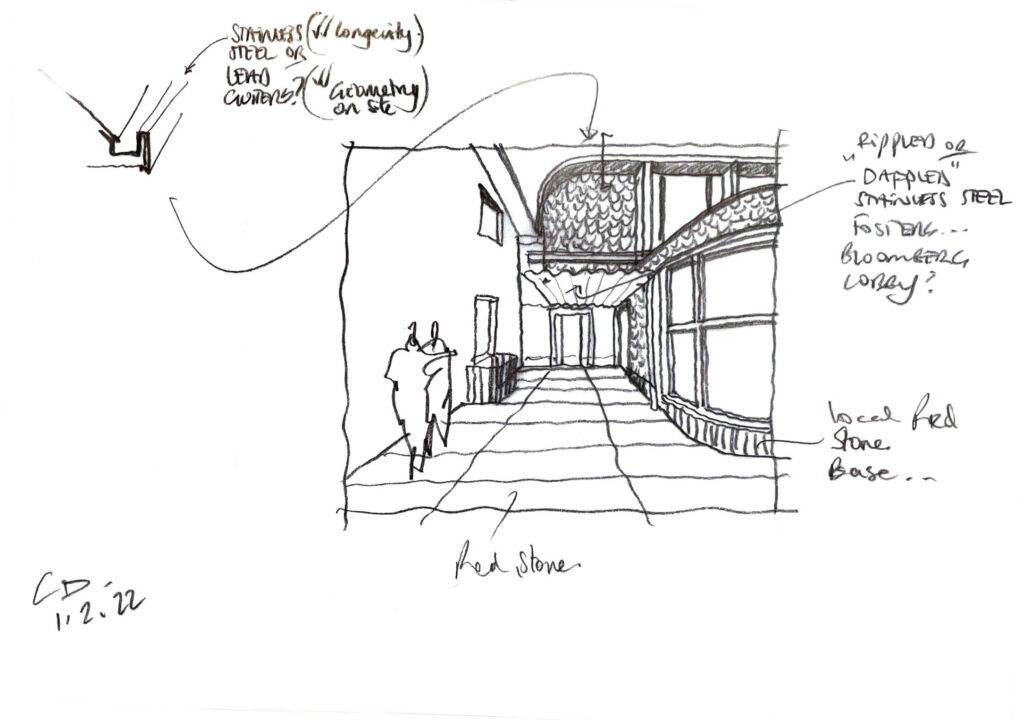 STAINLESS (√√ Longevity.)
STEEL OR
LEAD
GUTTERS? (√√ Geometry
on site)
"RIPPLED OR
DAPPLED"
STAINLESS STEEL
FOSTERS...
BLOOMBERG
LOBBY?
Local Red
Stone
Base...
Red Stone
CD.
1.2.'22